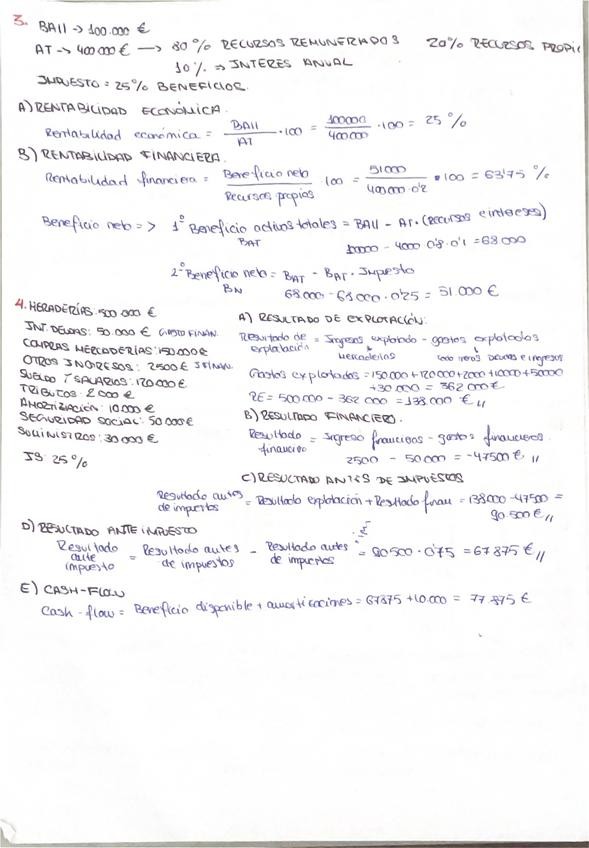 3. BAII → 100.000 €
AT → 400000 € → 80% RECURSOS REMUNERADOS 20% RECURSOS PROPI
10% ⇒ INTERES ANUAL
IMPUESTO = 25% BENEFICIOS.
A) RENTABILIDAD ECONÓMICA.
Rentabilidad económica = BAII / AT · 100 = 100000 / 400000 · 100 = 25%
B) RENTABILIDAD FINANCIERA.
Rentabilidad financiera = Beneficio neto / Recursos propios · 100 = 51000 / 400000·0'2 · 100 = 63'75 %
Beneficio neto => 1º Beneficio activos totales = BAII - AT · (Recursos e intereses)
BAT
- 4000 0'8·0'1 = 68000
2º Beneficio neto = BAT - BAT · Impuesto
BN
68000 - 68000 · 0'25 = 51.000 €
4. MERADERÍAS: 500 000 €
INT. DEUDAS: 50.000 € GASTO FINAN.
COMPRAS MERCADERIAS: 150000 €
OTROS INGRESOS: 2500 € FINAN.
SUELDO Y SALARIOS: 120000 €
TRIBUTOS: 2000 €
AMORTIZACIÓN: 10.000 €
SEGURIDAD SOCIAL: 50000 €
SUMINISTROS: 30000 €
IS: 25%
A) RESULTADO DE EXPLOTACIÓN:
Resultado de explotación = Ingresos explotado - gastos explotados
mercaderias
Gastos explotados = 150000 + 120000 + 2000 + 10000 + 50000
+ 30000 = 362000 €
RE = 500000 - 362 000 = 138000 € //
B) RESULTADO FINANCIERO.
Resultado financiero = Ingreso financieros - gastos financieros.
2500 - 50000 = -47500 € //
C) RESULTADO ANTES DE IMPUESTOS
Resultado antes de impuestos = Resultado explotación + Resultado finan = 138000 - 47500 =
90.500 € //
D) RESULTADO ANTE IMPUESTO
Resultado ante impuesto = Resultado antes de impuestos - Resultado antes de impuestos = 90500 · 0'75 = 67875 € //
E) CASH-FLOW
Cash-flow = Beneficio disponible + amortizaciones = 67875 + 10.000 = 77.875 €